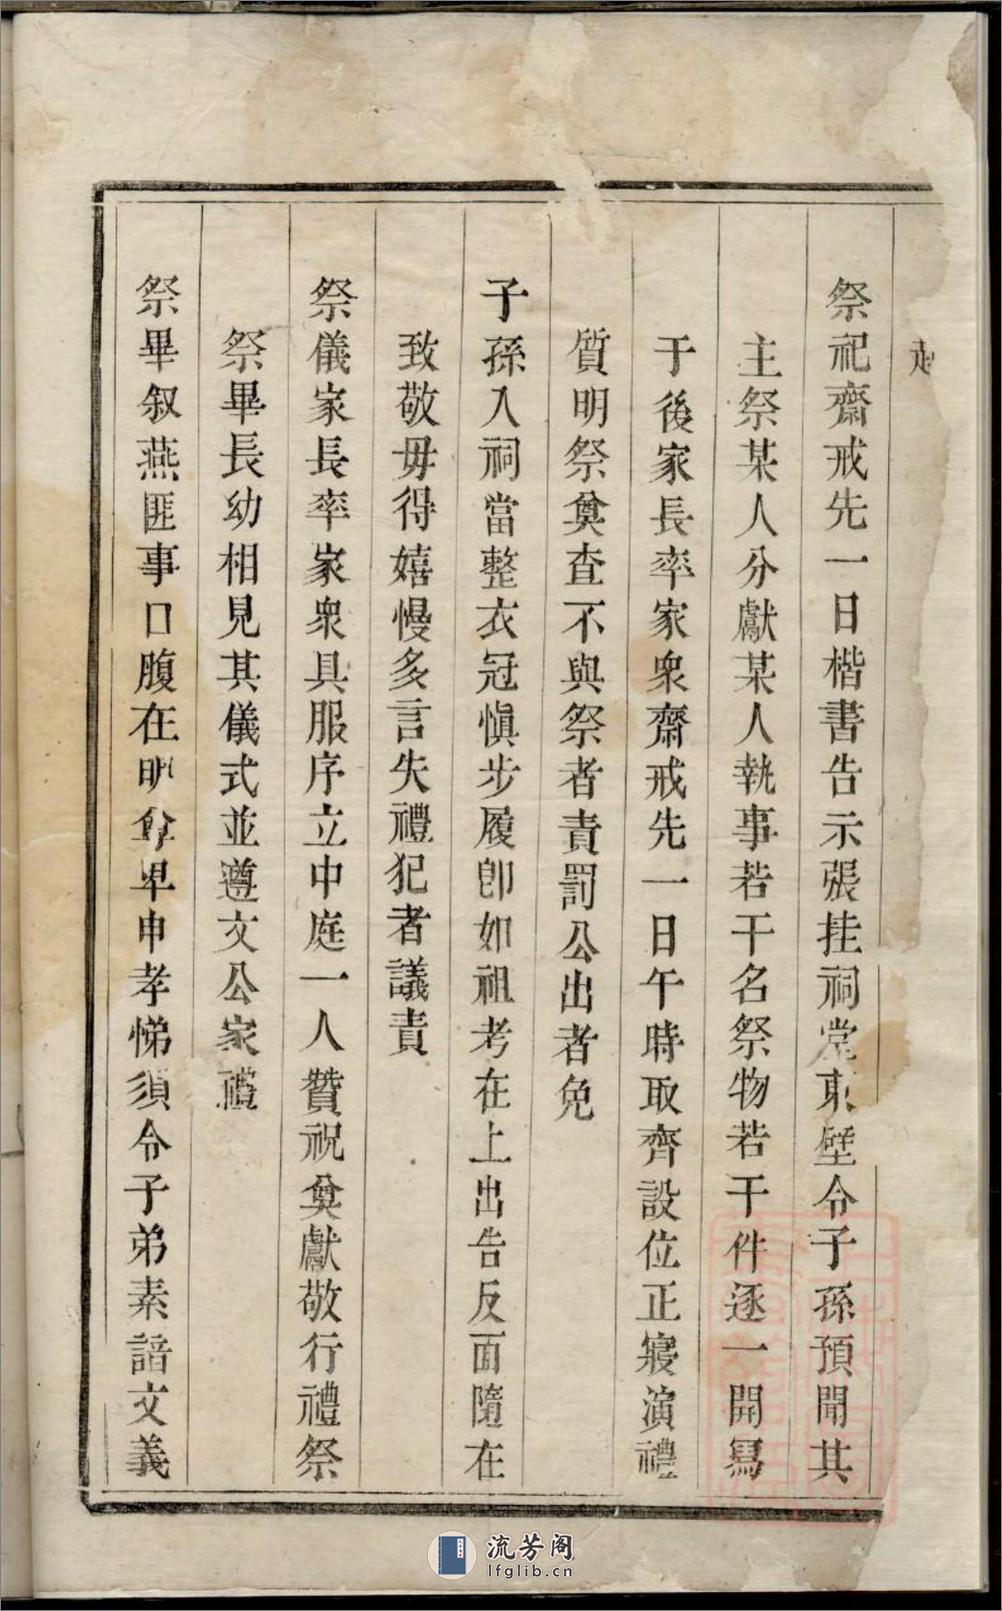 祭祀齋戒先一日楷書告示張挂祠堂東壁令子孫預聞其
主祭某人分獻某人執事若干名祭物若干件逐一開寫
于後家長率家衆齋戒先一日午時取齊設位正寢演禮
質明祭奠查不與祭者責罰公出者免
子孫入祠當整衣冠慎步履卽如祖考在上出告反面隨在
致敬毋得嬉慢多言失禮犯者議責
祭儀家長率家衆具服序立中庭一人贊祝奠獻敬行禮祭
祭畢長幼相見其儀式並遵文公家禮
祭畢叙燕匪事口腹在明卑申孝悌須令子弟素諳文義
流芳阁
lfglib.cn